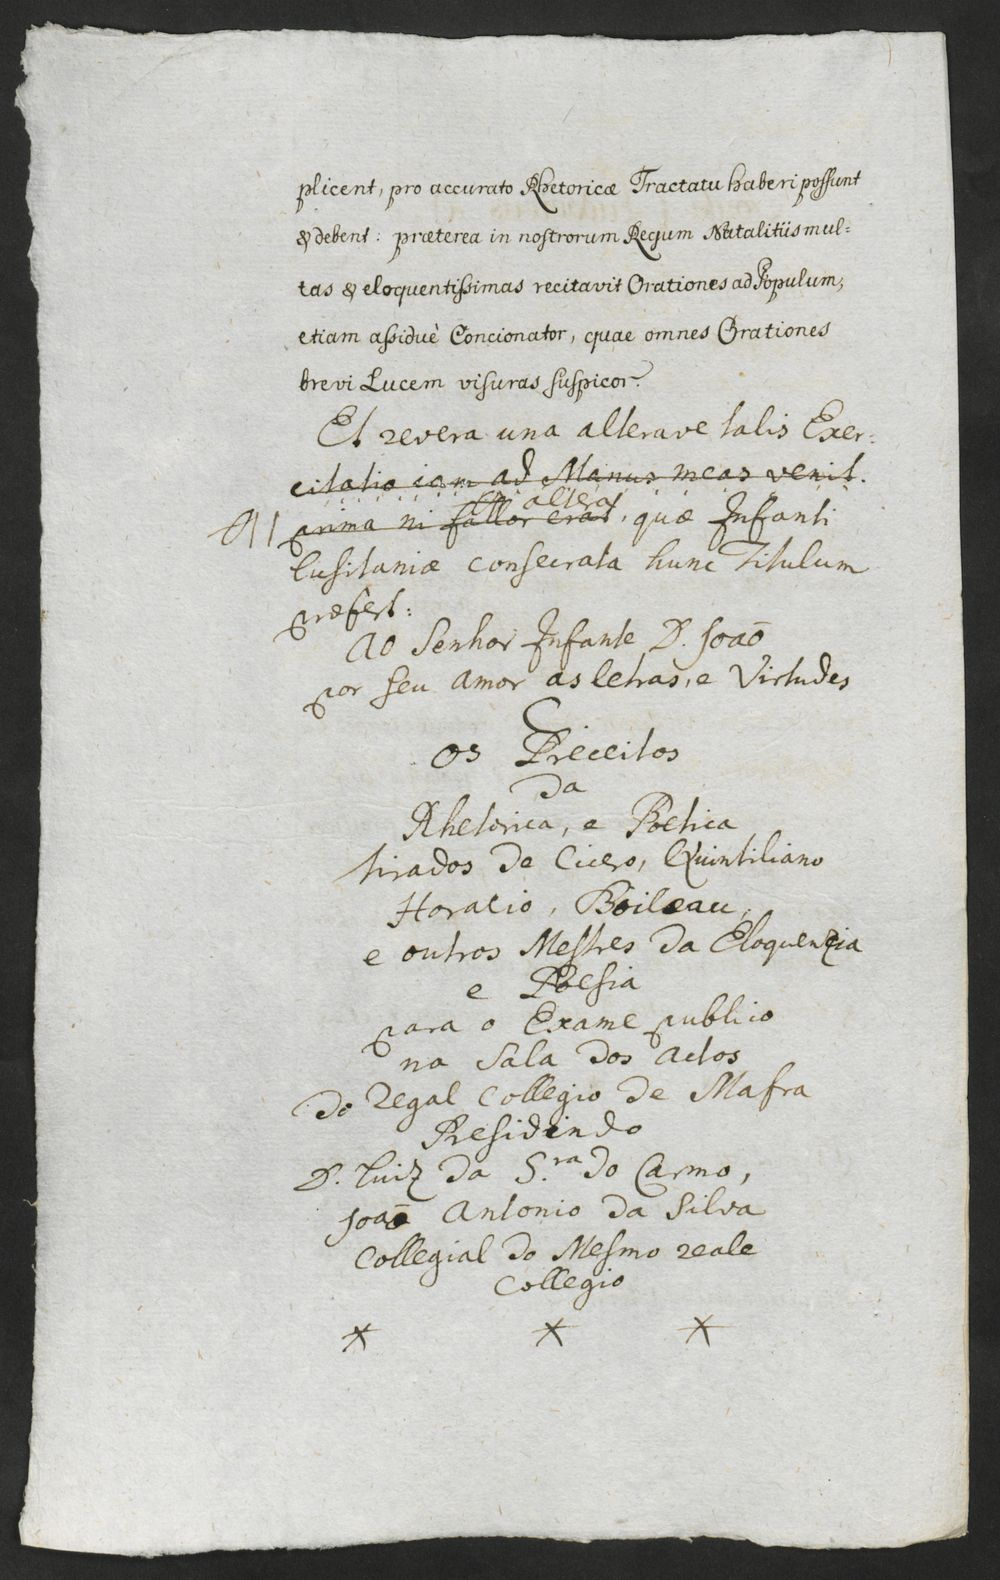 plicent, pro accurato Rhetoricæ Tractatu haberi poſſunt
& debent: præterea in noſtrorum Regum Natalitiis mul=
tas & eloquentiſsimas recitavit Orationes ad Populum,
etiam aſsiduè Concionator, quae omnes Orationes
brevi Lucem viſuras ſuſpicor.
Et revera una alterave talis Exer=
citatio iam ad Manus meas venit.
altera
prima ni fallor erat, quæ Infanti
Luſitaniæ conſecrata hunc Titulum
præfert:
Ao Senhor Infante D. Joaõ
por ſeu amor as letras, e Virtudes
Os Preceitos
da
Rhetorica, e Poetica
tirados de Cicero, Quintiliano
Horacio, Boileau,
e outros Meſtres da Eloquencia
e Poeſia
para o Exame publico
na Sala dos Actos
do Regal Collegio de Mafra
Preſidindo
D. Luiz da S.ra do Carmo,
Joaõ Antonio da Silva
Collegial do Meſmo reale
Collegio